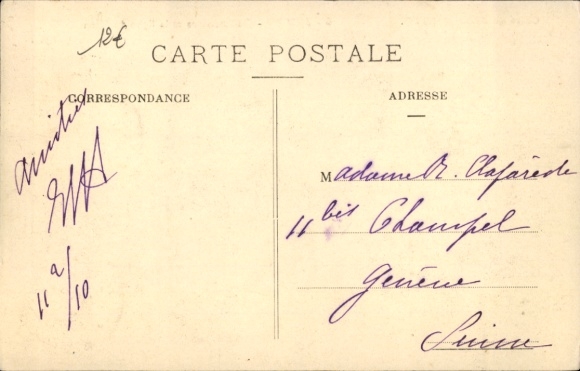 12€
CARTE POSTALE
CORRESPONDANCE
ADRESSE
Madame R. Claparède
11 bis Champel
Genève
Suisse